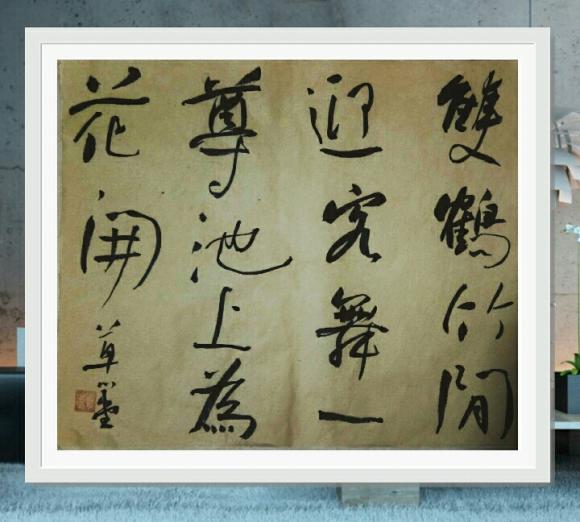 雙鶴竹間
迎客舞一
尊池上為
花開
草堂